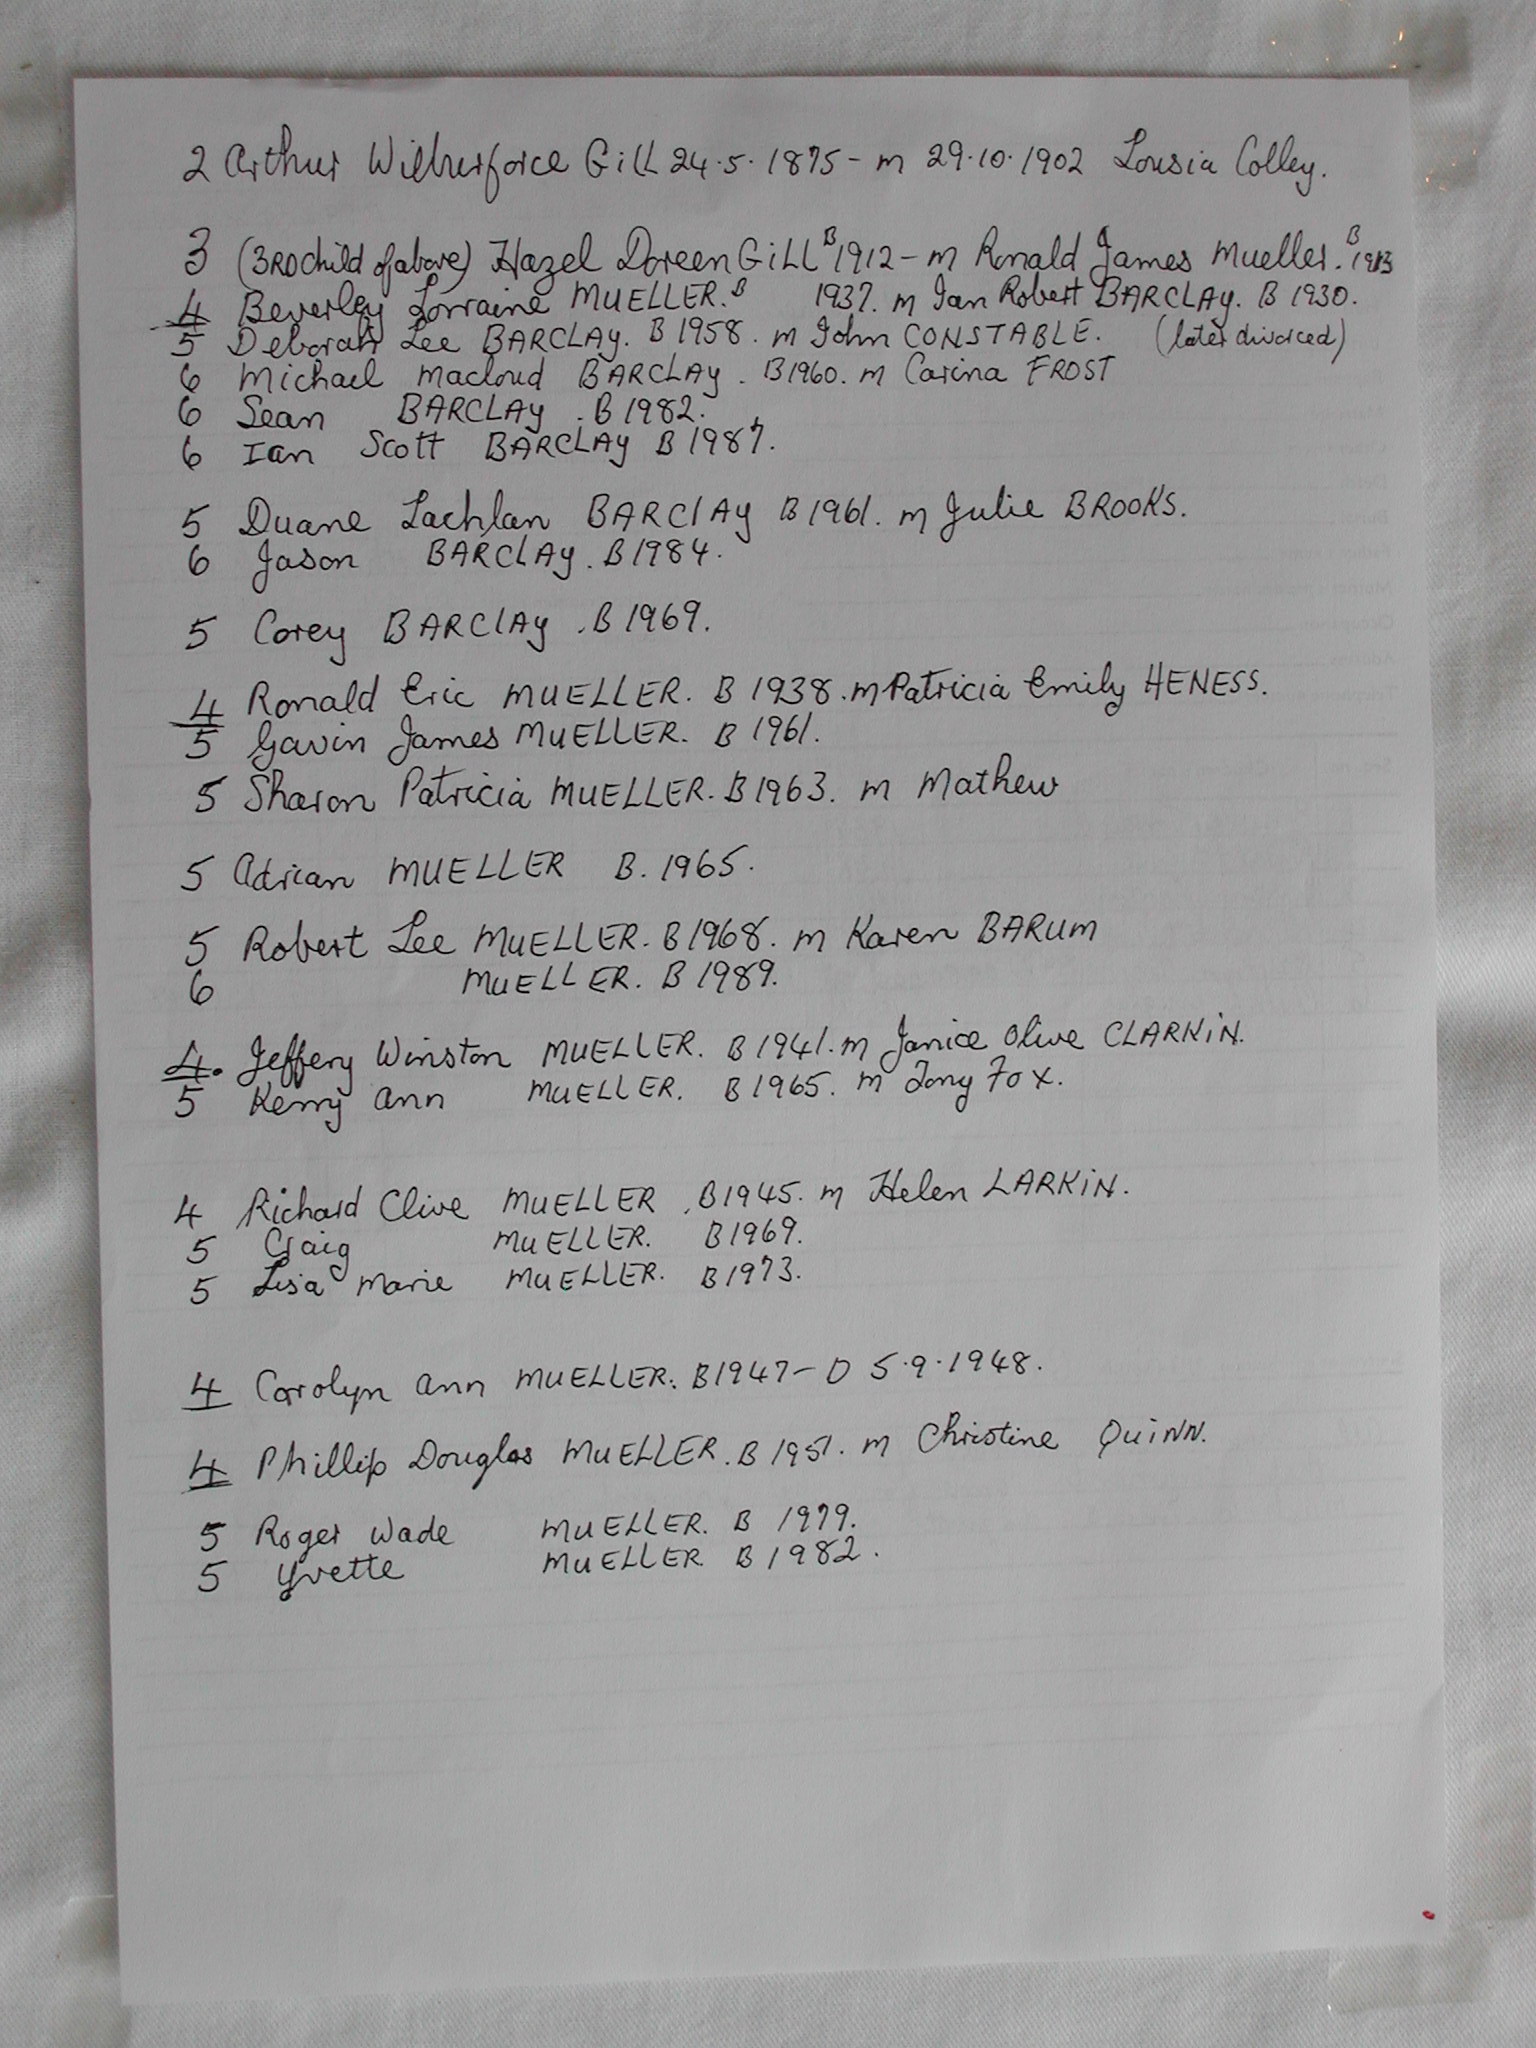 2 Arthur Wilberforce Gill 24.5.1875 - m 29.10.1902 Lousia Colley.
3 (3RD child of above) Hazel Doreen GiLL B 1912 - m Ronald James Mueller. B 1913
4 Beverley Lorraine MUELLER. B 1937. m Ian Robert BARCLAY. B 1930.
5 Deborah Lee BARCLAY. B 1958. m John CONSTABLE. (later divorced)
6 Michael Macloud BARCLAY. B1960. m Carina FROST
6 Sean BARCLAY. B 1982.
6 Ian Scott BARCLAY B 1987.
5 Duane Lachlan BARClAY B 1961. m Julie BROOKS.
6 Jason BARClAY. B 1984.
5 Corey BARClAY. B 1969.
4 Ronald Eric MUELLER. B 1938. m Patricia Emily HENESS.
5 Gavin James MUELLER. B 1961.
5 Sharon Patricia MUELLER. B 1963. m Mathew
5 Adrian MUELLER B. 1965.
5 Robert Lee MUELLER. B 1968. m Karen BARUM
6 MUELLER. B 1989.
4. Jeffery Winston MUELLER. B 1941. m Janice Olive CLARKiN.
5 Kerry Ann MUELLER. B 1965. m Tony Fox.
4 Richard Clive MUELLER. B1945. m Helen LARKiN.
5 Craig MUELLER. B1969.
5 Lisa Marie MUELLER. B1973.
4 Carolyn Ann MUELLER. B1947 - D 5.9.1948.
4 Phillip Douglas MUELLER. B 1951. m Christine QUiNN.
5 Roger Wade MUELLER. B 1979.
5 Yvette MUELLER B 1982.